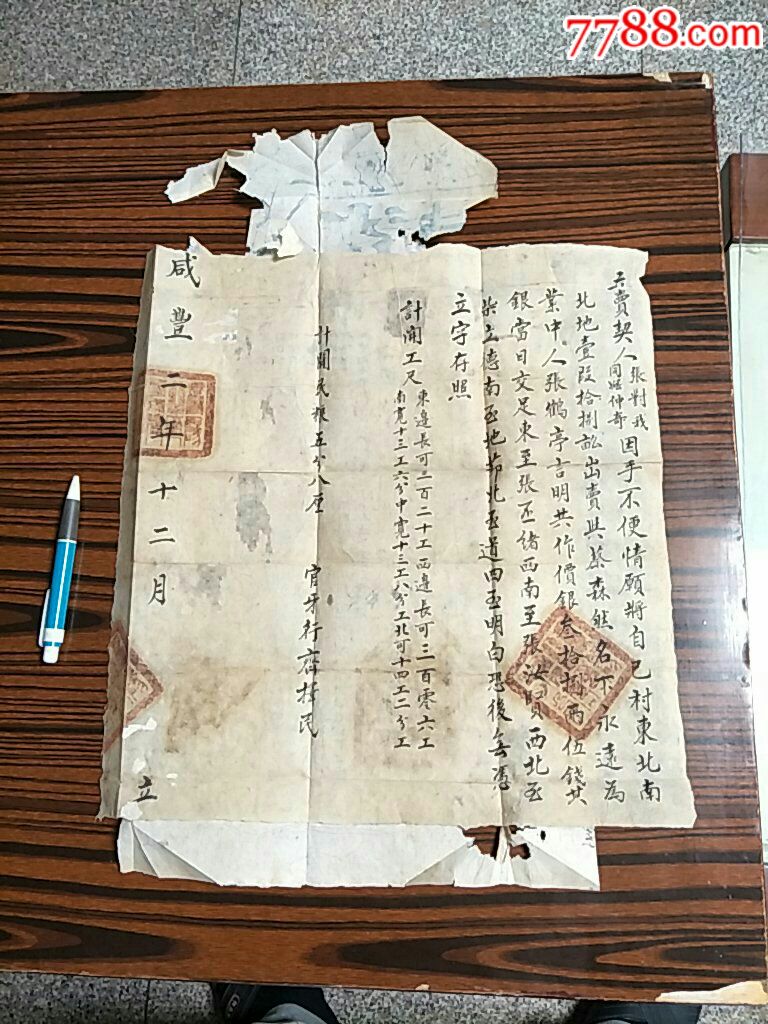 7788.com
立賣契人張對我同姪仲奇因手不便情願將自己村東北南
北地壹段拾捌畝出賣與蔡森然名下永遠為
業中人張鶴亭言明共作價銀叁拾捌兩伍錢其
銀當日交足東至張丕緒西南至張汝賢西北至
柴立德南至地節北至道四至明白恐後無憑
立字存照
計開工尺東邊長可二百二十工西邊長可二百零六工
南寬十三工六分中寬十三工八分工北可十四工二分工
計開民粮五分八厘
官牙行齊排民
咸豐二年十二月立